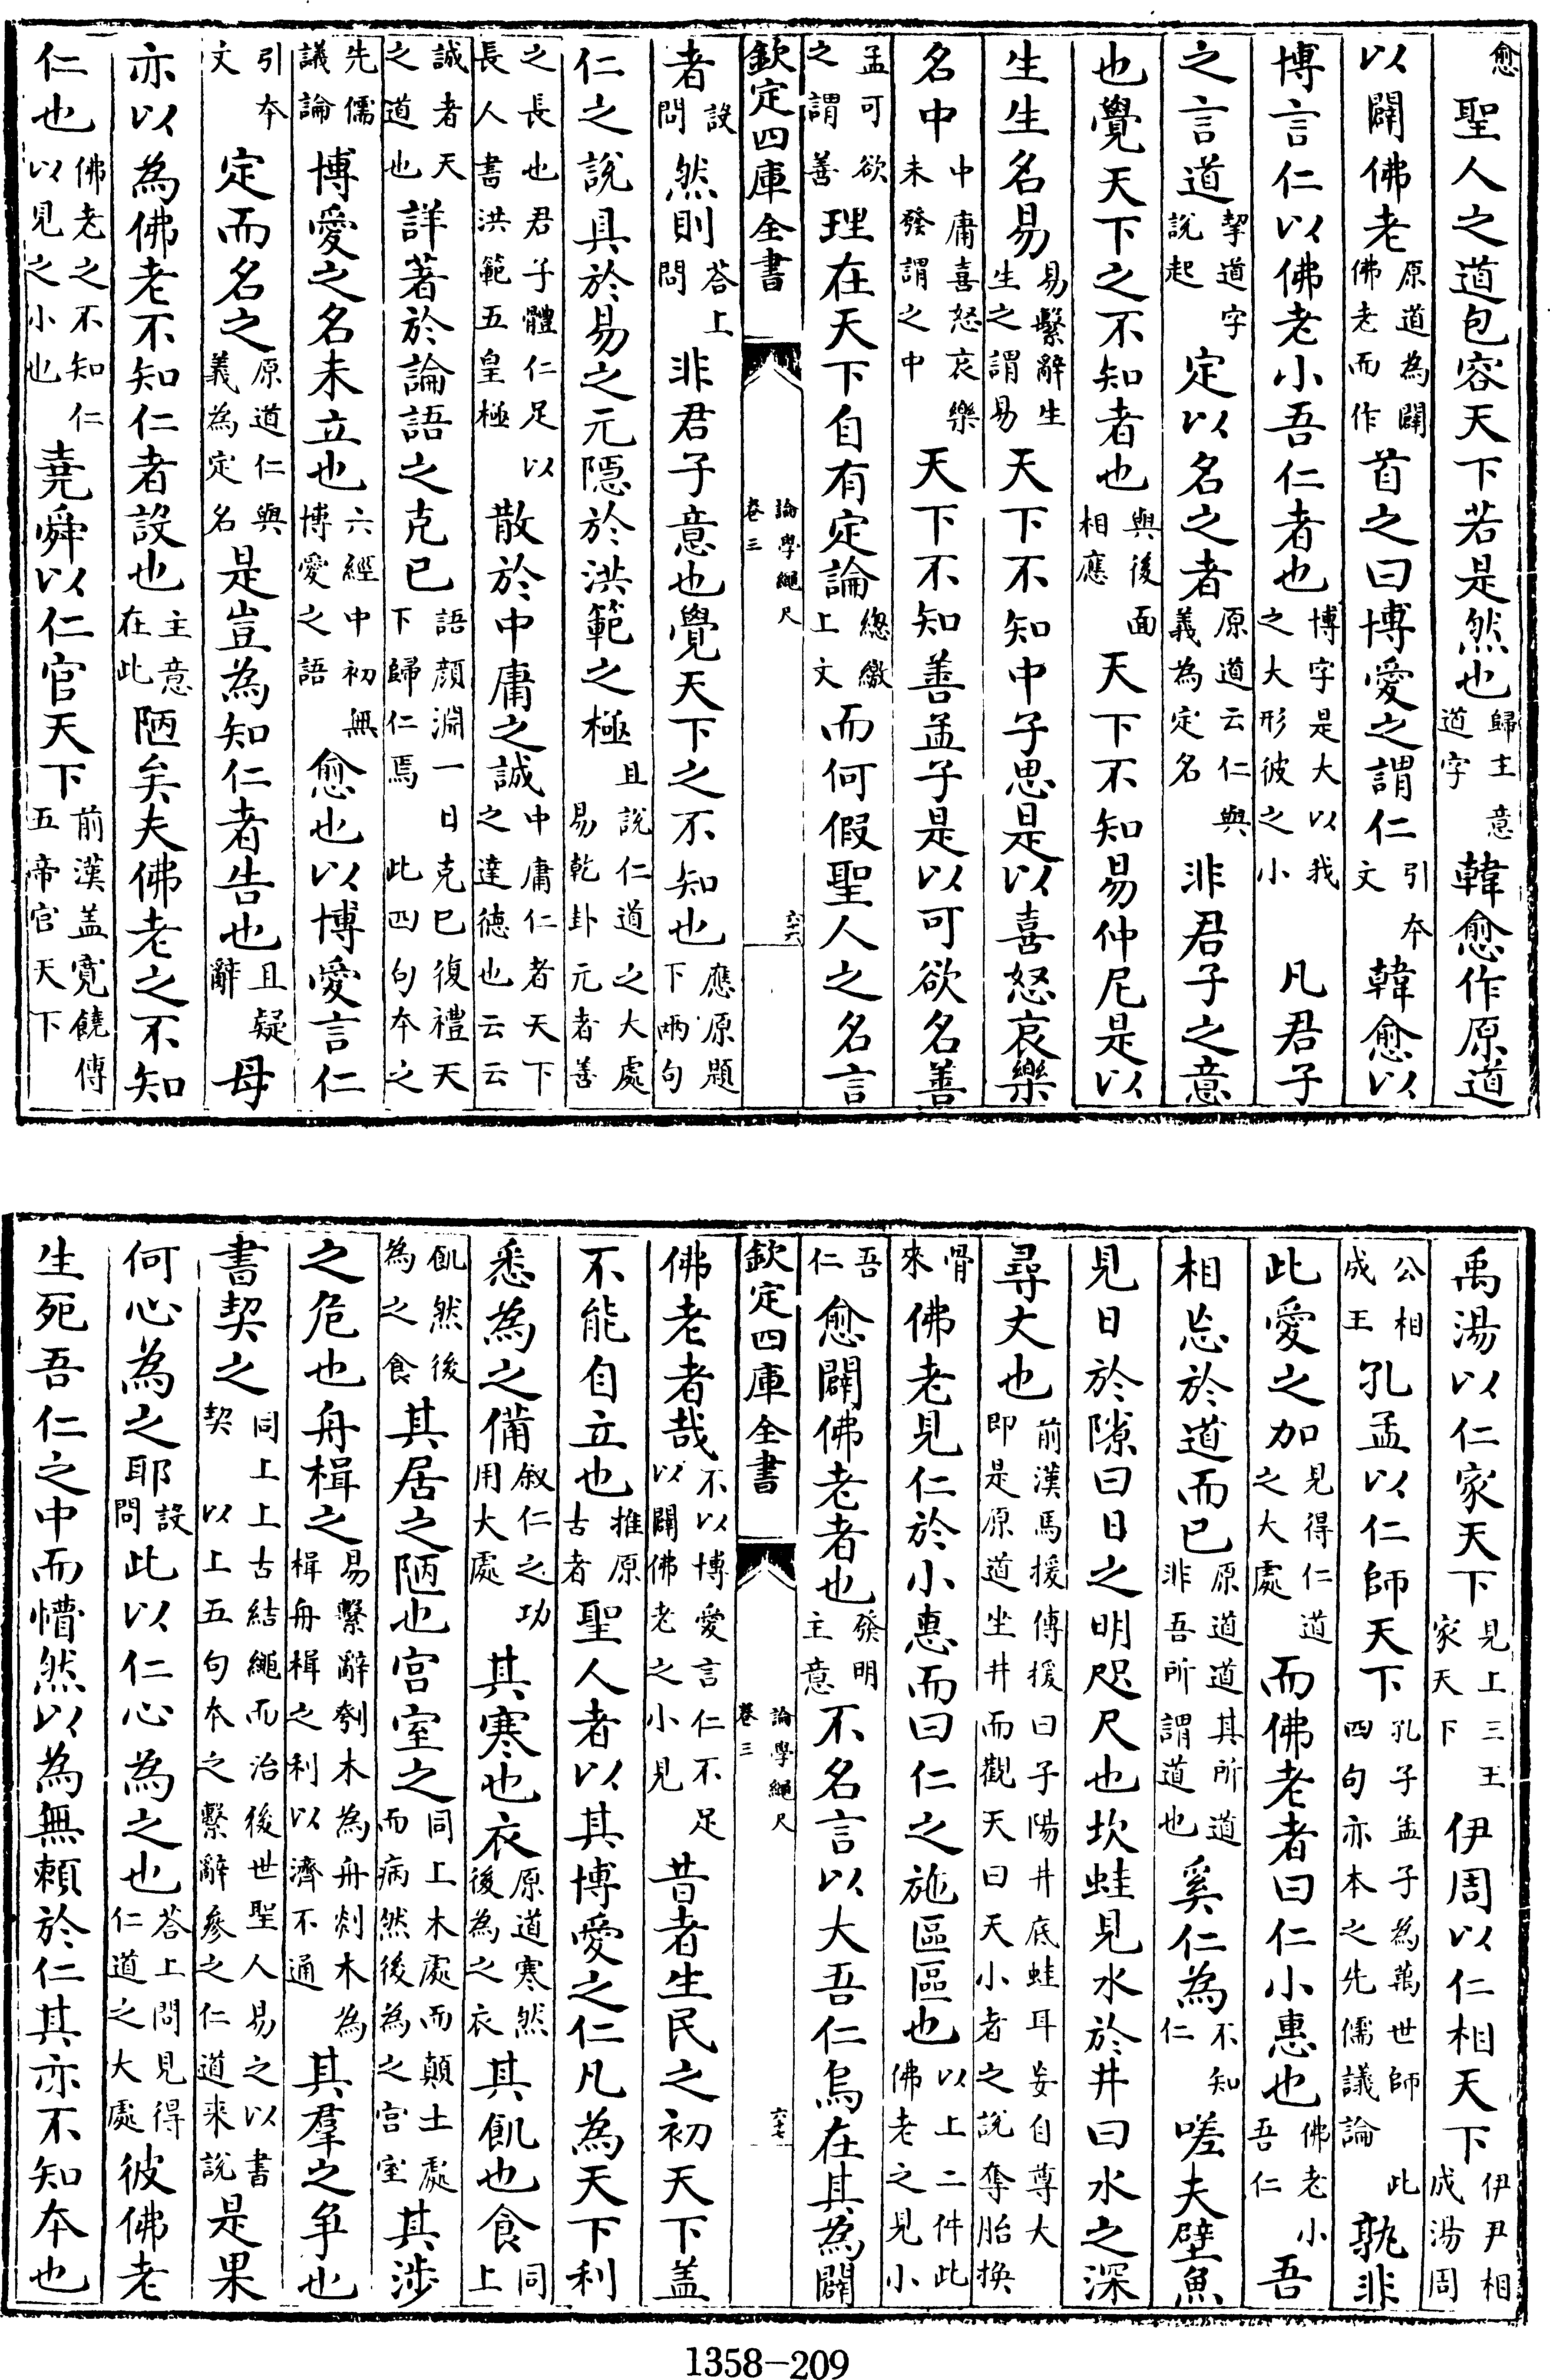 愈聖人之道包容天下若是然也歸主意道字韓愈作原道
以闢佛老原道為闢佛老而作首之曰博愛之謂仁引本文韓愈以
博言仁以佛老小吾仁者也博字是大以我之大形彼之小凡君子
之言道挈道字說起定以名之者原道云仁與義為定名非君子之意
也覺天下之不知者也與後面相應天下不知易仲尼是以
生生名易易繫辭生生之謂易天下不知中子思是以喜怒哀樂
名中中庸喜怒哀樂未發謂之中天下不知善孟子是以可欲名善
孟可欲之謂善理在天下自有定論總繳上文而何假聖人之名言
欽定四庫全書 論學繩尺卷三 六十六
者設問然則答上問非君子意也覺天下之不知也應原題下兩句
仁之說具於易之元隱於洪範之極且說仁道之大處易乾卦元者善
之長也君子體仁足以長人書洪範五皇極散於中庸之誠中庸仁者天下之達德也云云
誠者天之道也詳著於論語之克已語顏淵一日克已復禮天下歸仁焉此四句本之
先儒議論博愛之名未立也六經中初無博愛之語愈也以博愛言仁
引本文定而名之原道仁與義為定名是豈為知仁者告也且疑辭母
亦以為佛老不知仁者設也主意在此陋矣夫佛老之不知
仁也佛老之不知仁以見之小也堯舜以仁官天下前漢盖寛饒傳五帝官天下
禹湯以仁家天下見上三王家天下伊周以仁相天下伊尹相成湯周
公相成王孔孟以仁師天下孔子孟子為萬世師四句亦本之先儒議論此孰非
此愛之加見得仁道之大處而佛老者曰仁小惠也佛老小吾仁吾
相忘於道而已原道道其所道非吾所謂道也奚仁為不知仁嗟夫壁魚
見日於隙曰日之明咫尺也坎蛙見水於井曰水之深
尋丈也前漢馬援傳援曰子陽井底蛙耳妄自尊大即是原道坐井而觀天曰天小者之說奪胎換
骨來佛老見仁於小惠而曰仁之施區區也以上二件此佛老之見小
吾仁愈闢佛老者也發明主意不名言以大吾仁烏在其為闢
欽定四庫全書 論學繩尺卷三 六十七
佛老者哉不以博愛言仁不足以闢佛老之小見昔者生民之初天下盖
不能自立也推原古者聖人者以其博愛之仁凡為天下利
悉為之備叙仁之功用大處其寒也衣原道寒然後為之衣其飢也食同上
飢然後為之食其居之陋也宫室之同上木處而顛土處而病然後為之宫室其涉
之危也舟楫之易繫辭刳木為舟剡木為楫舟楫之利以濟不通其羣之争也
書契之同上上古結繩而治後世聖人易之以書契以上五句本之繫辭參之仁道来說是果
何心為之耶設問此以仁心為之也答上問見得仁道之大處彼佛老
生死吾仁之中而懵然以為無賴於仁其亦不知本也
1358-209